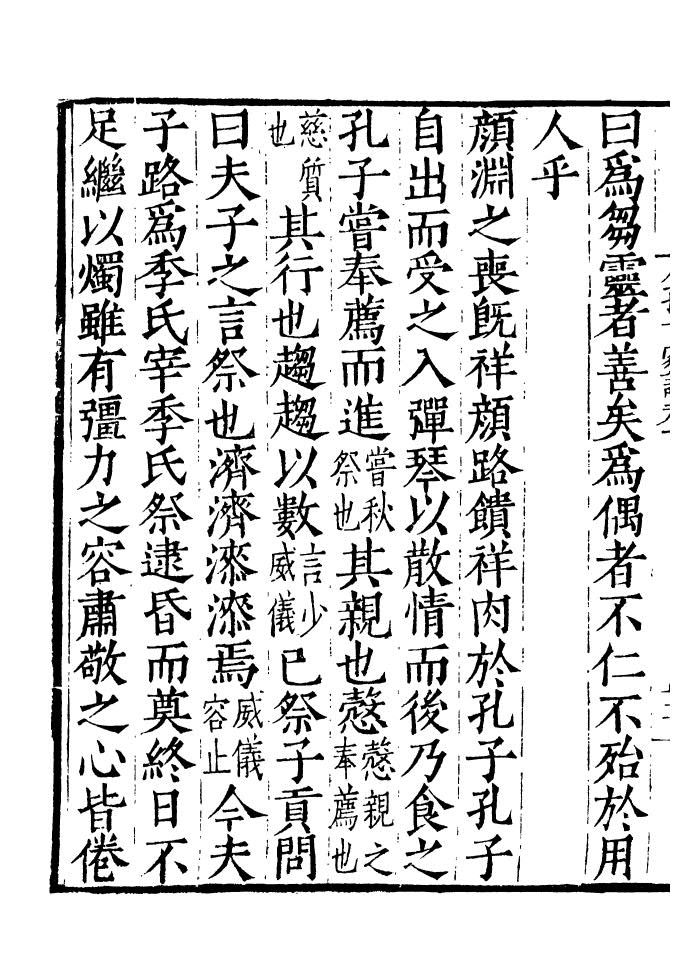 曰爲芻靈者善矣爲偶者不仁不殆於用
人乎
顔淵之喪旣祥顔路饋祥肉於孔子孔子
自出而受之入彈琴以散情而後乃食之
孔子嘗奉薦而進嘗秋祭也其親也愨愨親之奉薦也
慈質也其行也趨趨以數言少威儀已祭子貢問
曰夫子之言祭也濟濟漆漆焉威儀容止今夫
子路爲季氏宰季氏祭逮昏而奠終日不
足繼以燭雖有彊力之容肅敬之心皆倦